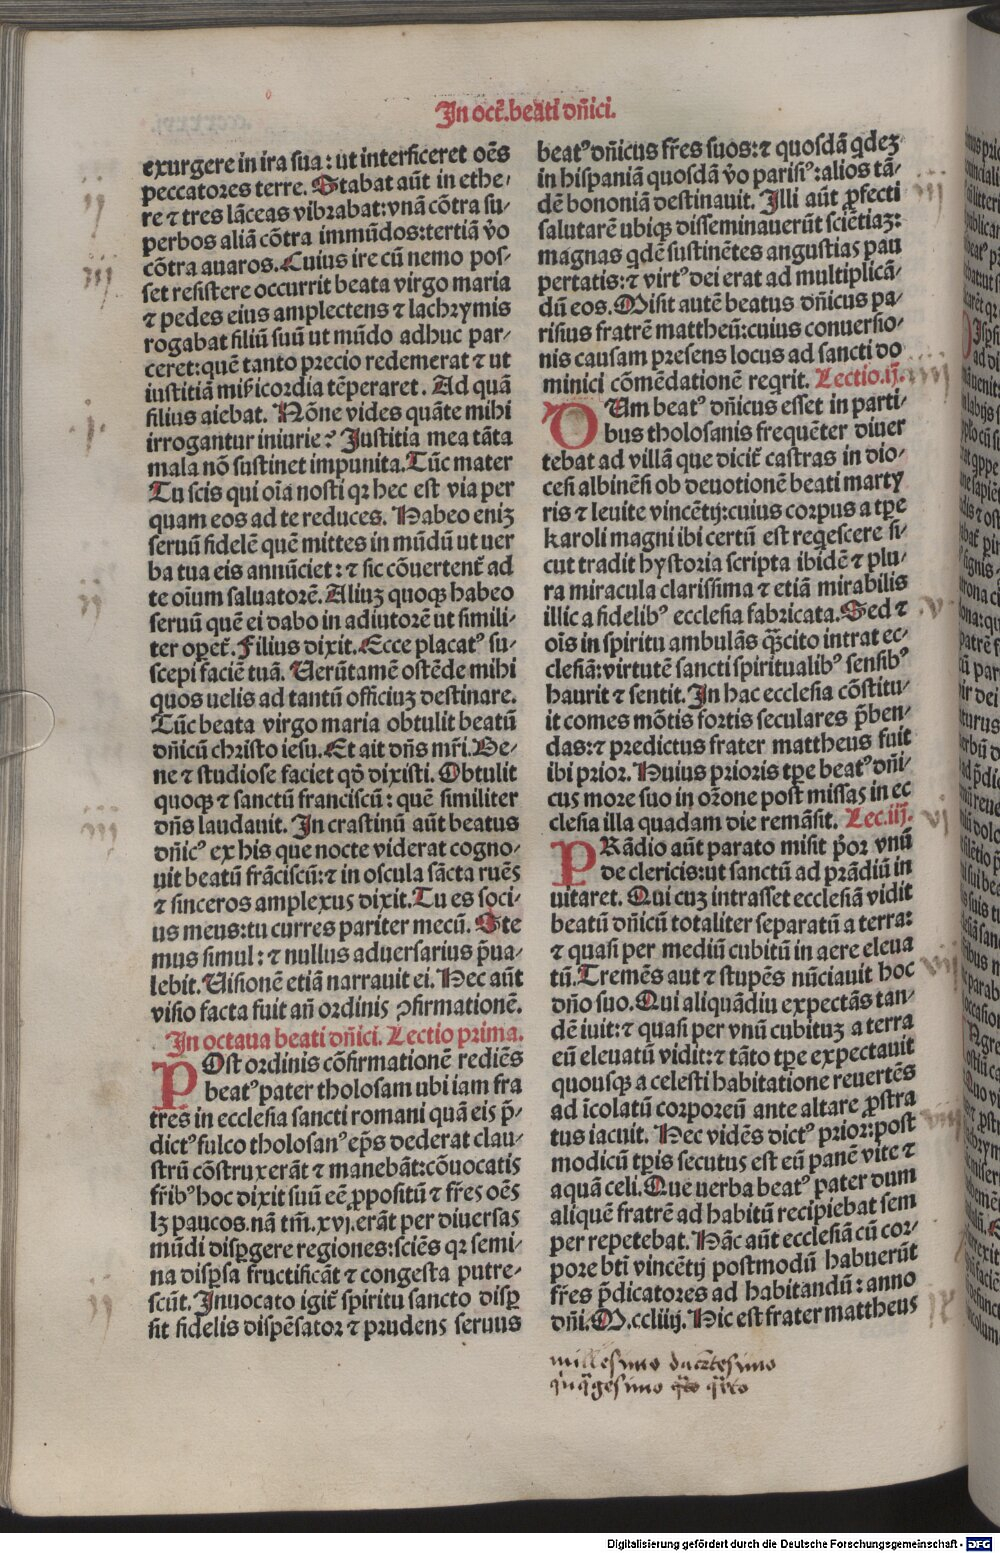 In oct̄.beati dn̄ici.
exurgere in ira sua: ut interficeret oēs
peccatores terre. Stabat aūt in ethe-
re ⁊ tres lāceas vibrabat:vnā cōtra su-
perbos aliā cōtra immūdos:tertiā v̄o
cōtra auaros.Cuius ire cū nemo pos-
set resistere occurrit beata virgo maria
⁊ pedes eius amplectens ⁊ lachrymis
rogabat filiū suū ut mūdo adhuc par-
ceret:quē tanto precio redemerat ⁊ ut
iustitiā mīsicordia tēperaret. Ad quā
filius aiebat. Nōne vides quāte mihi
irrogantur iniurie? Justitia mea tāta
mala nō sustinet impunita.Tūc mater
Tu scis qui oīa nosti qꝛ hec est via per
quam eos ad te reduces. Habeo eniꝫ
seruū fidelē quē mittes in mūdū ut uer
ba tua eis annūciet: ⁊ sic cōuertent̄ ad
te oīum saluatorē. Aliuꝫ quoqꝫ habeo
seruū quē ei dabo in adiutorē ut simili-
ter opet̄. Filius dixit. Ecce placatꝰ su-
scepi faciē tuā. Uerūtamē ostēde mihi
quos uelis ad tantū officiuꝫ destinare.
Tūc beata virgo maria obtulit beatū
dn̄icū christo iesu. Et ait dn̄s mr̄i. Be-
ne ⁊ studiose faciet qd̄ dixisti. Obtulit
quoqꝫ ⁊ sanctū franciscū: quē similiter
dn̄s laudauit. In crastinū aūt beatus
dn̄icꝰ ex his que nocte viderat cogno-
uit beatū frāciscū:⁊ in oscula sācta ruēs
⁊ sinceros amplexus dixit. Tu es soci-
us meus:tu curres pariter mecū. Ste
mus simul: ⁊ nullus aduersarius p̄ua-
lebit. Uisionē etiā narrauit ei. Hec aūt
visio facta fuit an̄ ordinis ꝯfirmationē.
In octaua beati dn̄ici. Lectio prima.
POst ordinis cōfirmationē rediēs
beatꝰ pater tholosam ubi iam fra
tres in ecclesia sancti romani quā eis p̄-
dictꝰ fulco tholosanꝰ ep̄s dederat clau-
strū cōstruxerāt ⁊ manebāt:cōuocatis
fr̄ibꝰ hoc dixit suū eē ꝓpositū ⁊ fr̄es oēs
lꝫ paucos.nā tm̄.xvj.erāt per diuersas
mūdi disꝑgere regiones:sciēs qꝛ semi-
na disꝑsa fructificāt ⁊ congesta putre-
scūt. Inuocato igit̄ spiritu sancto disꝑ
sit fidelis dispēsator ⁊ prudens seruus
beatꝰ dn̄icus fr̄es suos:⁊ quosdā qdeꝫ
in hispaniā quosdā v̄o parisiꝰ:alios tā-
dē bononiā destinauit. Illi aūt ꝑfecti
salutarē ubiqꝫ disseminauerūt sciētiaꝫ:
magnas qdē sustinētes angustias pau
pertatis:⁊ virtꝰ dei erat ad multiplicā-
dū eos. Misit autē beatus dn̄icus pa-
risius fratrē mattheū:cuius conuersio-
nis causam presens locus ad sancti do
minici cōmēdationē reqrit. Lectio.ij.
DUm beatꝰ dn̄icus esset in parti-
bus tholosanis frequēter diuer
tebat ad villā que dicit̄ castras in dio-
cesi albinēsi ob deuotionē beati marty
ris ⁊ leuite vincētij:cuius corpus a tp̄e
karoli magni ibi certū est reqescere si-
cut tradit hystoria scripta ibidē ⁊ plu-
ra miracula clarissima ⁊ etiā mirabilis
illic a fidelibꝰ ecclesia fabricata. Sed ⁊
oīs in spiritu ambulās q̄cito intrat ec-
clesiā:virtutē sancti spiritualibꝰ sensibꝰ
haurit ⁊ sentit. In hac ecclesia cōstitu-
it comes mōtis fortis seculares p̄ben-
das:⁊ predictus frater mattheus fuit
ibi prior. Huius prioris tp̄e beatꝰ dn̄i-
cus more suo in or̄one post missas in ec
clesia illa quadam die remāsit. Lec.iij.
PRādio aūt parato misit p̄or vnū
de clericis:ut sanctū ad prādiū in
uitaret. Qui cuꝫ intrasset ecclesiā vidit
beatū dn̄icū totaliter separatū a terra:
⁊ quasi per mediū cubitū in aere eleua
tū. Tremēs aut ⁊ stupēs nūciauit hoc
dn̄o suo. Qui aliquādiu expectās tan-
dē iuit:⁊ quasi per vnū cubituꝫ a terra
eū eleuatū vidit:⁊ tāto tp̄e expectauit
quousqꝫ a celesti habitatione reuertēs
ad īcolatū corporeū ante altare ꝓstra
tus iacuit. Hec vidēs dictꝰ prior:post
modicū tp̄is secutus est eū panē vite ⁊
aquā celi. Que uerba beatꝰ pater dum
aliquē fratrē ad habitū recipiebat sem
per repetebat. Hāc aūt ecclesiā cū cor-
pore bt̄i vincētij postmodū habuerūt
fr̄es p̄dicatores ad habitandū: anno
dn̄i. M.ccliiij. Hic est frater mattheus
millesimo ducētesimo
qͥnqᵃgesimo qᵃrto